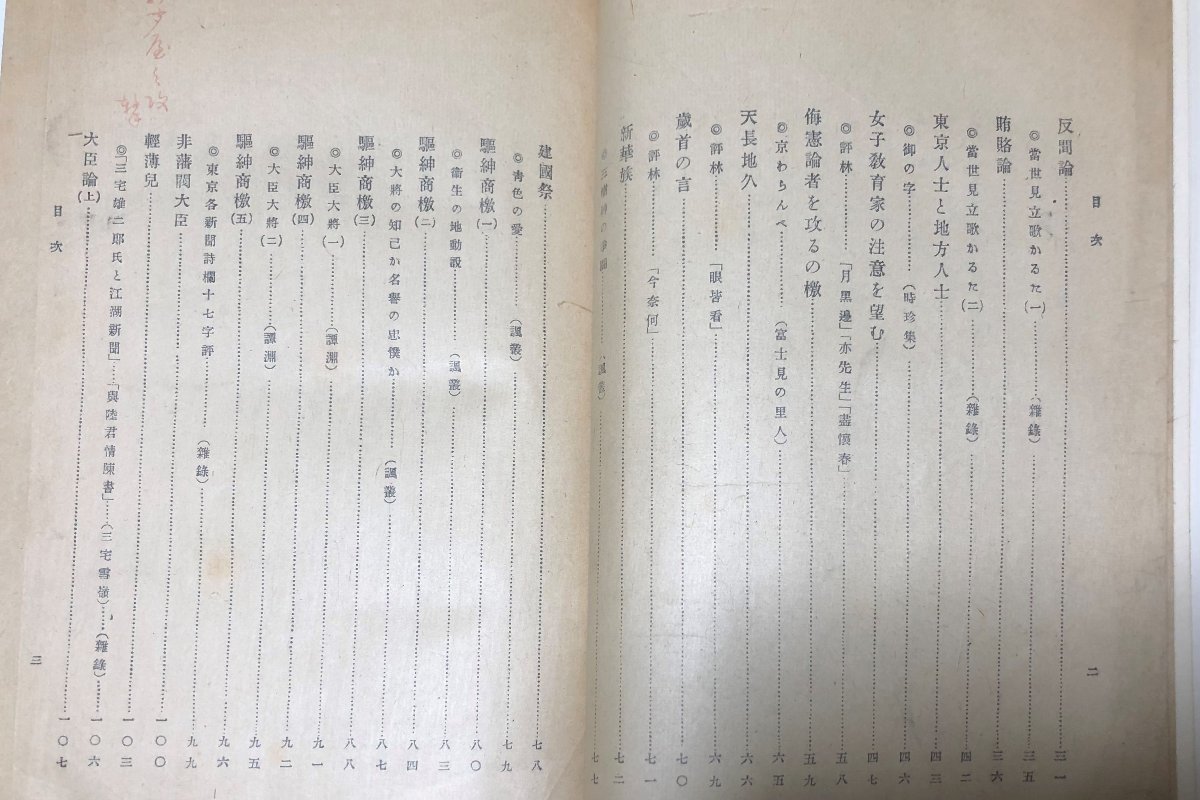 目次
反間論 三一
◎當世見立歌かるた(一) (雜錄) 三五
賄賂論 三六
◎當世見立歌かるた(二) (雜錄) 四二
東京人士と地方人士 四三
◎御の字 (時珍集) 四六
女子敎育家の注意を望む 四七
◎評林 「月黑邊」「亦先生」「盡懷春」 五八
侮憲論者を攻るの檄 五九
◎京わらんべ (富士見の里人) 六五
天長地久 六六
◎評林 「眼皆看」 六九
歲首の言 七〇
◎評林 「今奈何」 七一
新華族 七二
(諷叢) 七七
二
建國祭 七八
◎靑色の愛 (諷叢) 七九
驅紳商檄(一) 八〇
◎衞生の地動說 (諷叢) 八三
驅紳商檄(二) 八四
◎大將の知己か名譽の忠僕か (諷叢) 八七
驅紳商檄(三) 八八
◎大臣大將(一) (譚淵) 九一
驅紳商檄(四) 九二
◎大臣大將(二) (譚淵) 九五
驅紳商檄(五) 九六
◎東京各新聞詩欄十七字評 (雜錄) 九九
非藩閥大臣 一〇〇
輕薄兒 一〇三
◎「三宅雄二郞氏と江湖新聞」「與陸君情陳書」 (三宅雪嶺) (雜錄) 一〇六
大臣論(上) 一〇七
目次
三